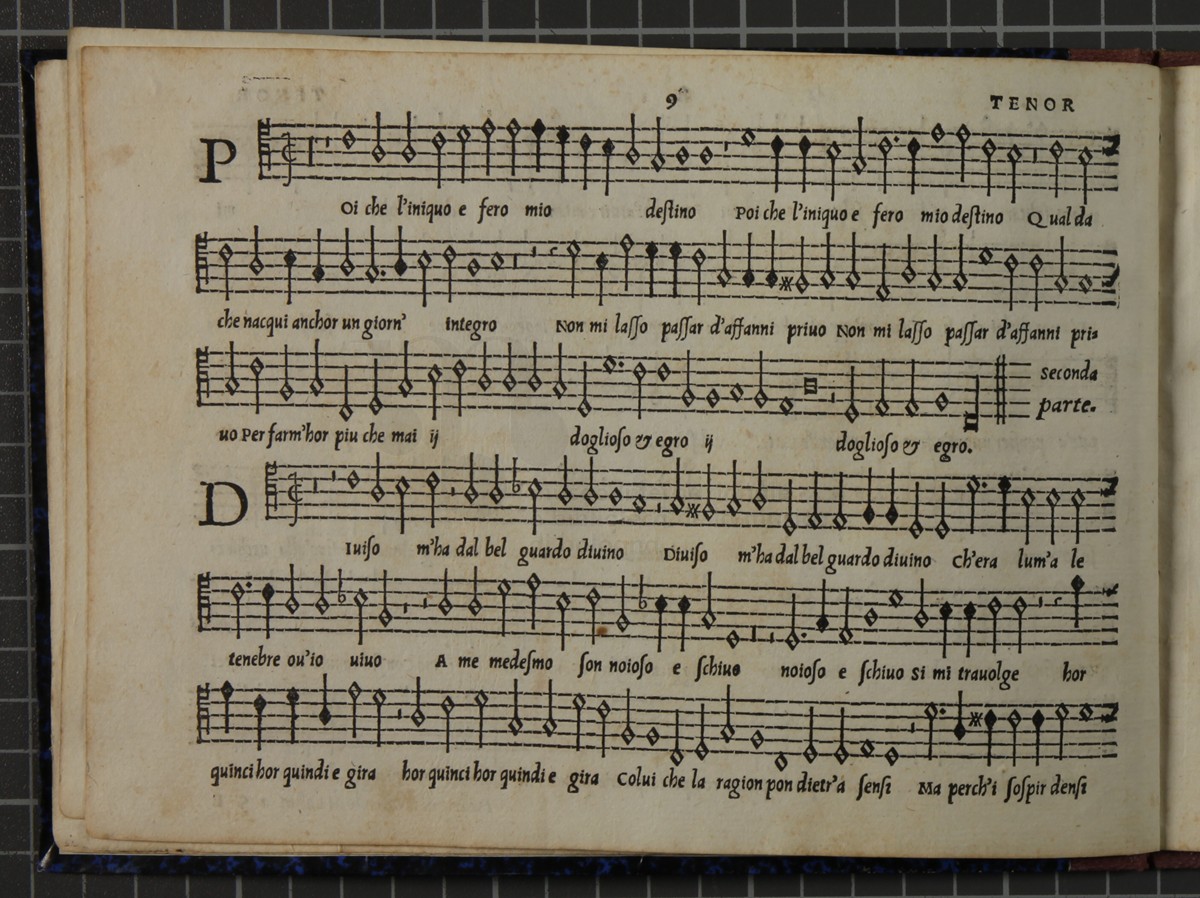 9 TENOR
P Oi che l'iniquo e fero mio deſtino Poi che l'iniquo e fero mio deſtino Qual da
che nacqui anchor un giorn' integro Non mi laſſo paſſar d'affanni priuo Non mi laſſo paſſar d'affanni pri=
uo Per farm'hor piu che mai ij doglioſo & egro ij doglioſo & egro. seconda
parte.
D Iuiſo m'ha dal bel guardo diuino Diuiſo m'ha dal bel guardo diuino Ch'era lum'a le
tenebre ou'io uiuo A me medeſmo ſon noioſo e ſchiuo noioſo e ſchiuo Si mi trauolge hor
quinci hor quindi e gira hor quinci hor quindi e gira Colui che la ragion pon dietr'a ſenſi Ma perch'i ſoſpir denſi